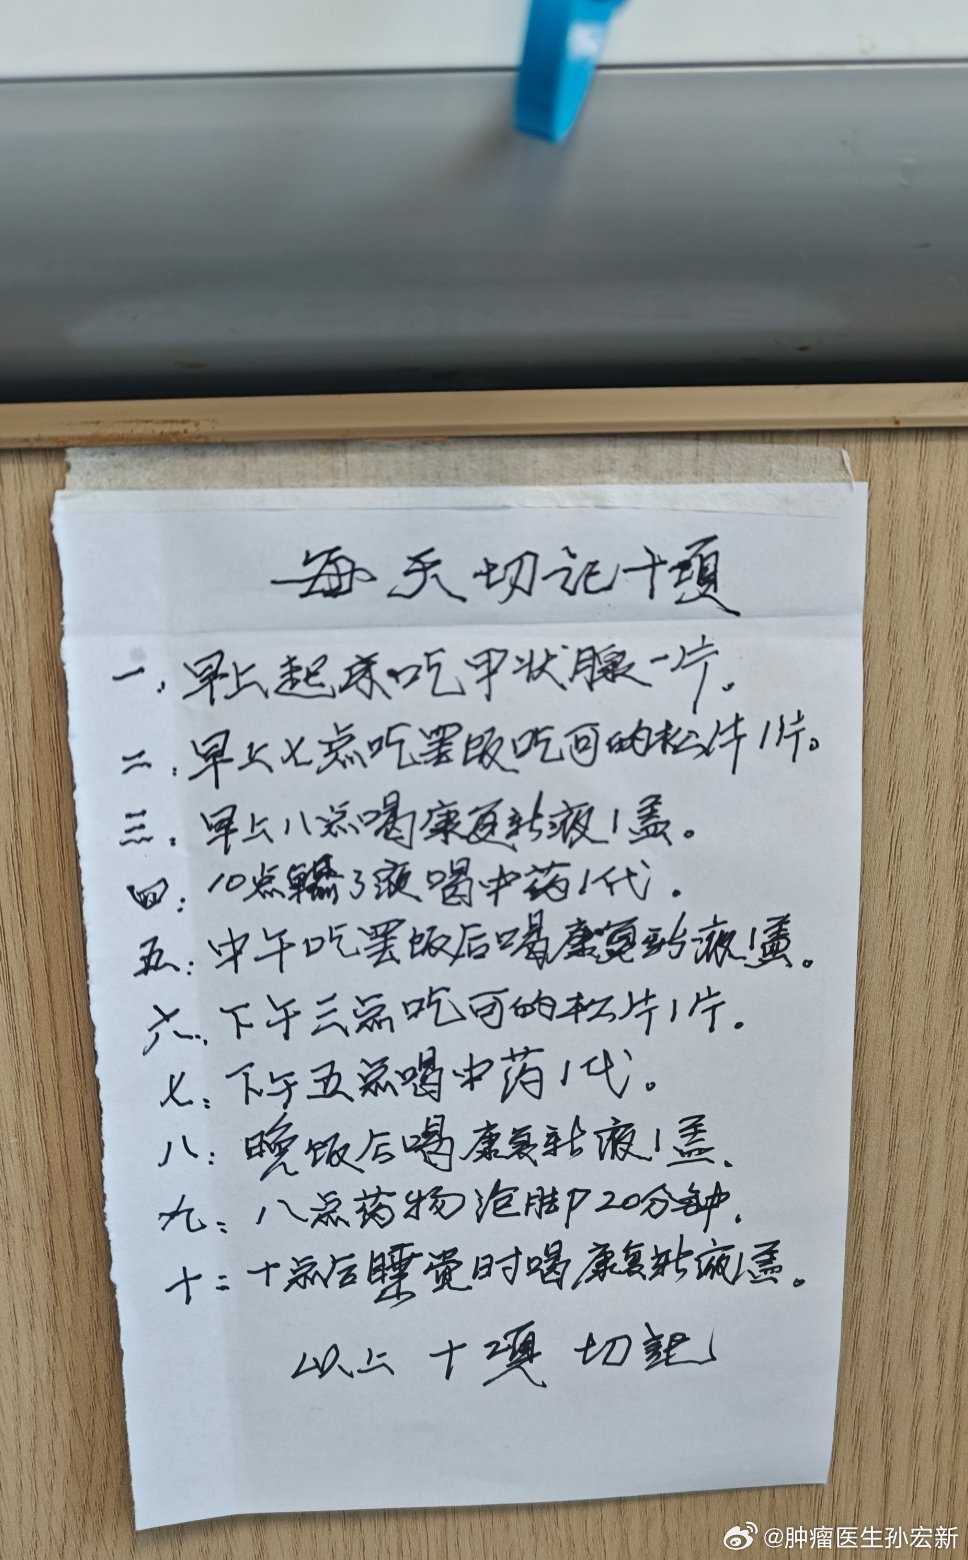 每天切记十項
一，早上起床吃甲状腺一片。
二，早上七点吃罢饭吃可的松片1片。
三，早上八点喝康复新液1盖。
四：10点输了液喝中药1代。
五：中午吃罢饭后喝康复新液1盖。
六，下午三点吃可的松片1片。
七：下午五点喝中药1代。
八：晚饭后喝康复新液1盖、
九：八点药物泡脚20分钟.
十：十点后睡觉时喝康复新液1盖。
以上十項切記
@肿瘤医生孙宏新